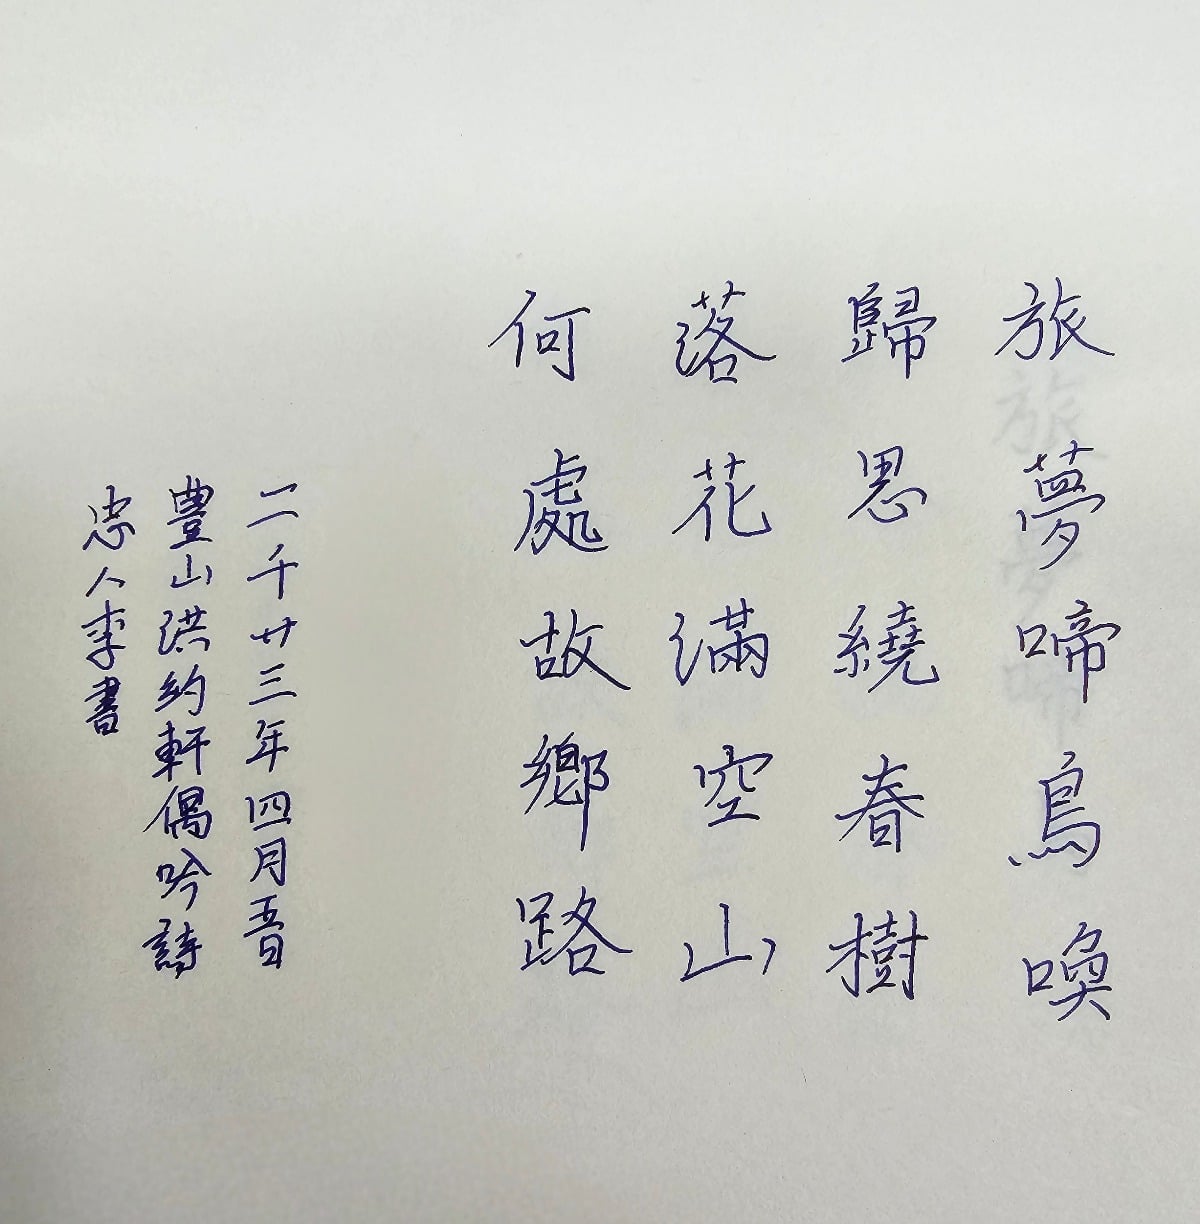 旅夢啼鳥喚
歸思繞春樹
落花滿空山
何處故鄉路
二千廿三年四月五日
豊山洪約軒偶吟詩
忠人李書